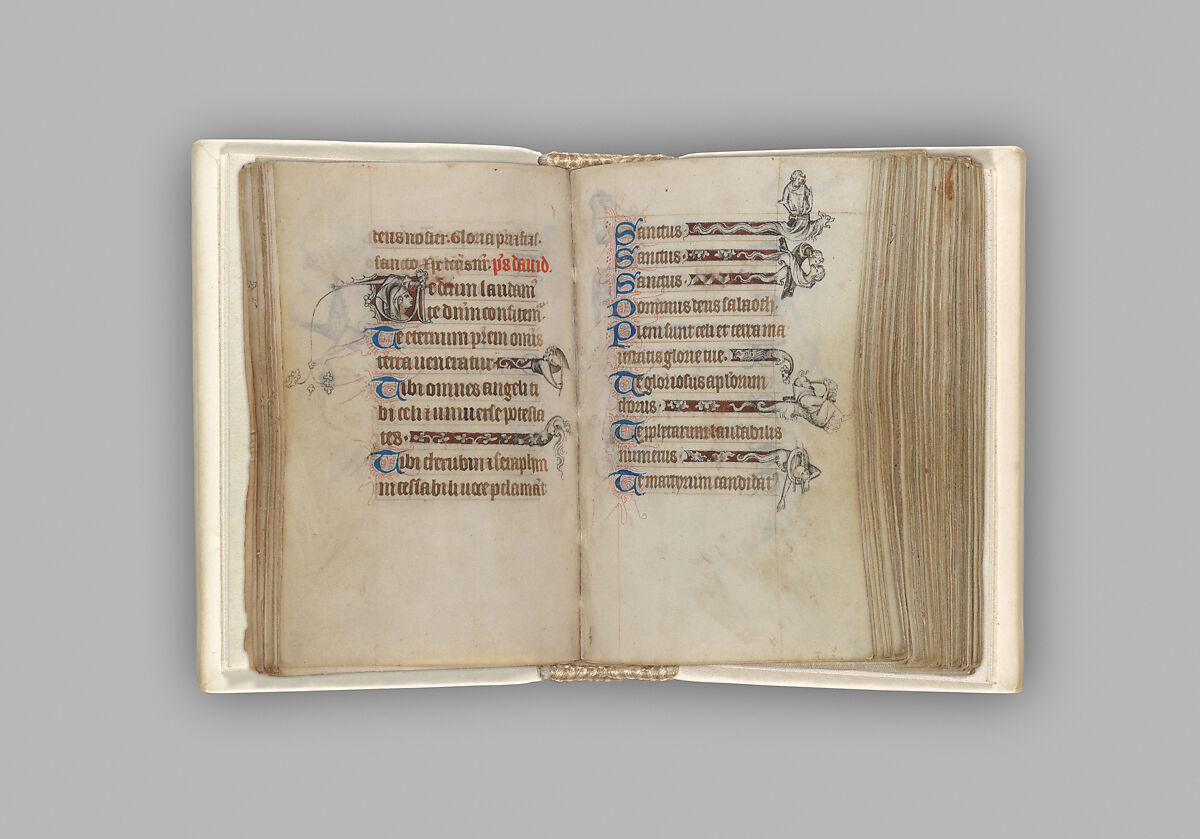 deus noster. Gloria pri & fil'.
sancto. xp̄e dn̄s nr̄. ps dauid.
Te deum laudam'
te dn̄m confitem'.
Te eternum prēm om̄is
terra ueneratur.
Tibi omnes angeli ti
bi celi & uniuerse potesta
tes.
Tibi cherubin & seraphin
incessabili uoce pclamāt
Sanctus.
Sanctus.
Sanctus.
Dominus deus sabaoth.
Pleni sunt celi et terra ma
iestatis glorie tue.
Te gloriosus aplōrum
chorus.
Te pphetarum laudabilis
numerus
Te martyrum candidat'